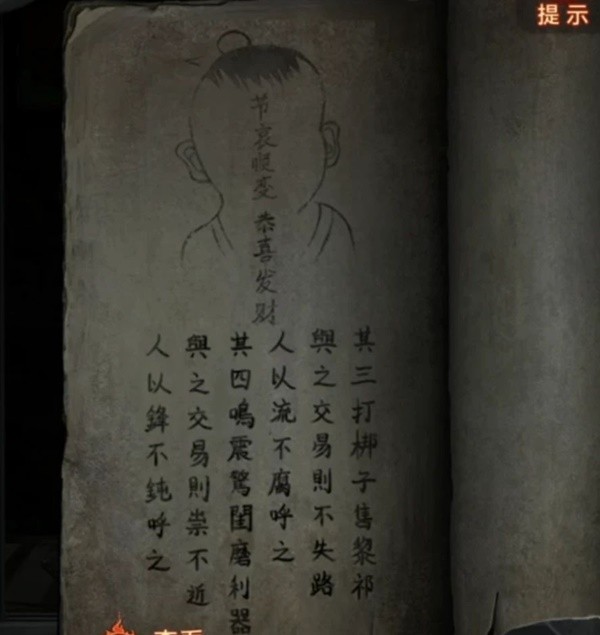 提示
节哀顺变
恭喜发财
其三打梆子售黎祁
與之交易則不失路
人以流不腐呼之
其四鳴震驚閨磨利器
與之交易則祟不近
人以鋒不鈍呼之